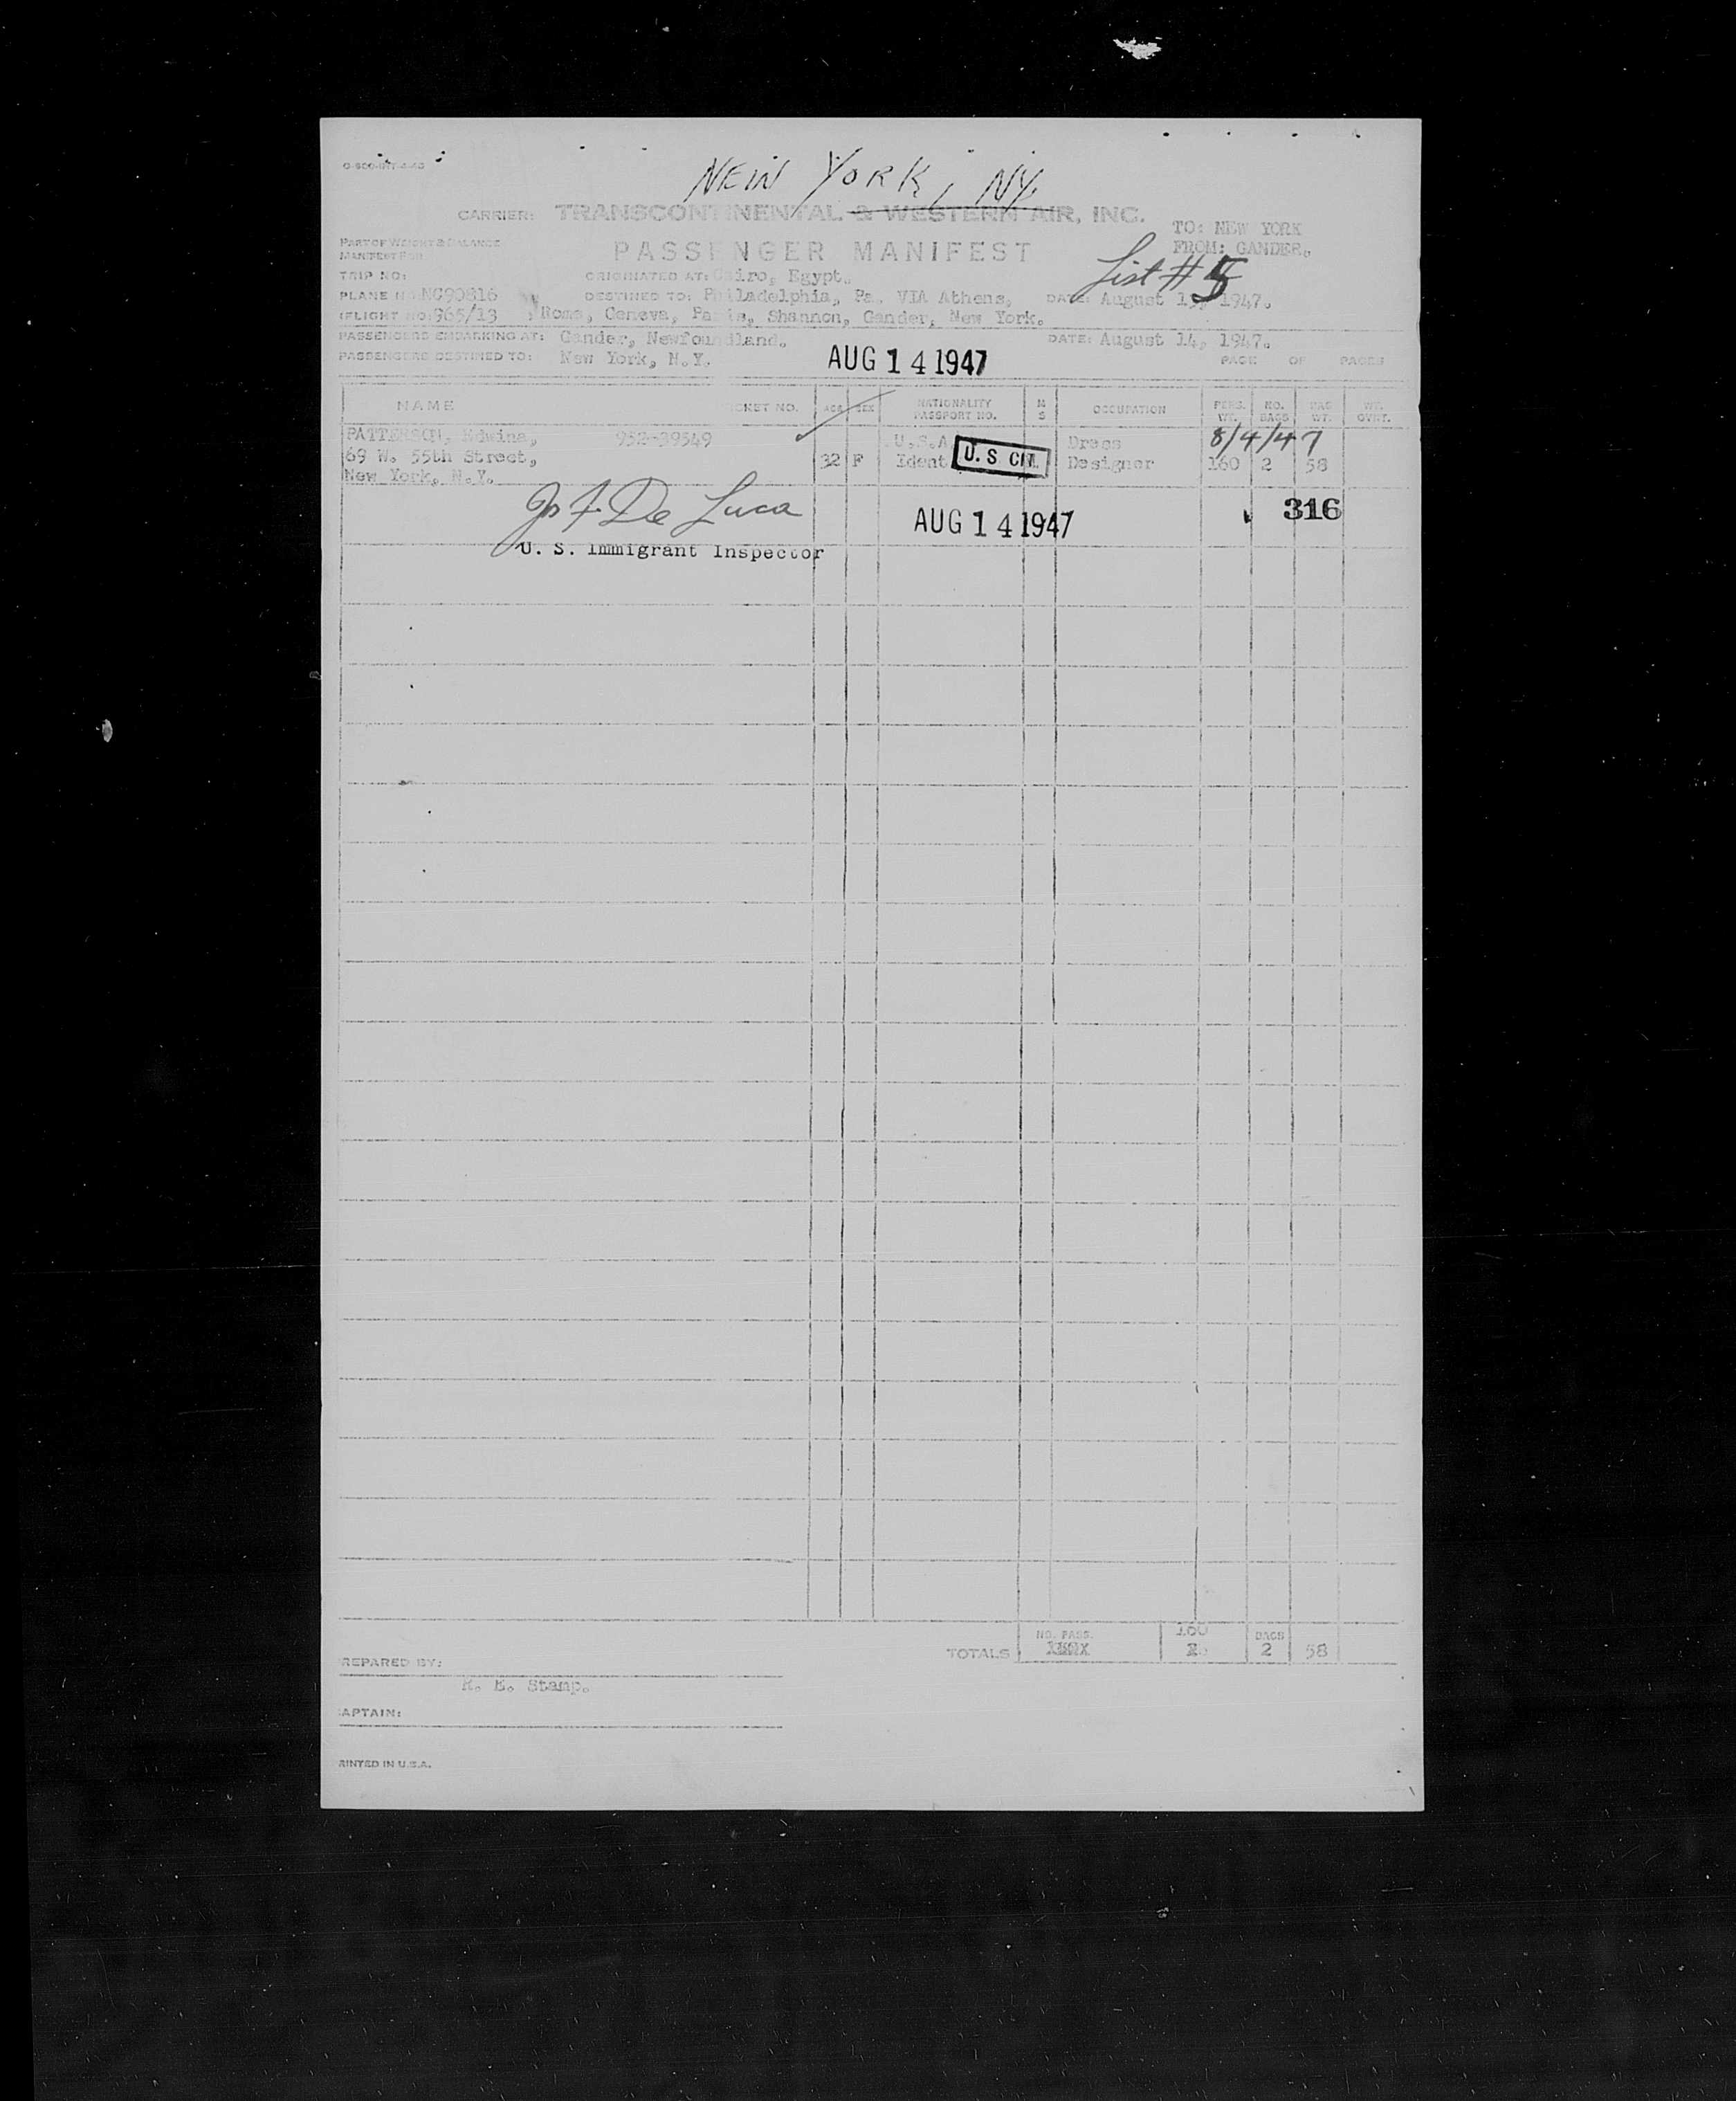 NEW YORK, NY.
CARRIER: TRANSCONTINENTAL & WESTERN AIR, INC.
TO: NEW YORK
FROM: GANDER.
PART OF WEIGHT & BALANCE
MANIFEST FOR
PASSENGER MANIFEST
List # 5
TRIP NO:
ORIGINATED AT: Cairo, Egypt.
PLANE NO: NC90816
DESTINED TO: Philadelphia, Pa. VIA Athens,
DATE: August 1, 1947.
FLIGHT NO: 965/13
Rome, Geneva, Paris, Shannon, Gander, New York.
PASSENGERS EMBARKING AT: Gander, Newfoundland.
DATE: August 14, 1947.
PASSENGERS DESTINED TO: New York, N.Y.
AUG 14 1947
PAGE OF PAGES
NAME TICKET NO. AGE SEX NATIONALITY PASSPORT NO. M S OCCUPATION PERS. WT. NO. BAGS BAG WT. WT. OVRT.
PATTERSON, Edwina, 952-39549 U.S.A Dress 8/4/47
69 W. 55th Street, 32 F Ident U. S. CIT. Designer 160 2 58
New York, N.Y.
De Luca AUG 14 1947 316
U. S. Immigrant Inspector
TOTALS NO. PASS. 160 BAGS 2 58
PREPARED BY:
R. E. Stamp.
CAPTAIN:
PRINTED IN U.S.A.